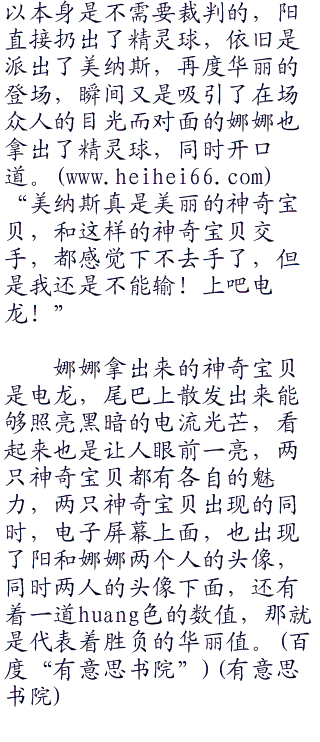 以本身是不需要裁判的，阳
直接扔出了精灵球，依旧是
派出了美纳斯，再度华丽的
登场，瞬间又是吸引了在场
众人的目光而对面的娜娜也
拿出了精灵球，同时开口
道。(www.heihei66.com)
“美纳斯真是美丽的神奇宝
贝，和这样的神奇宝贝交
手，都感觉下不去手了，但
是我还是不能输！上吧电
龙！”
娜娜拿出来的神奇宝贝
是电龙，尾巴上散发出来能
够照亮黑暗的电流光芒，看
起来也是让人眼前一亮，两
只神奇宝贝都有各自的魅
力，两只神奇宝贝出现的同
时，电子屏幕上面，也出现
了阳和娜娜两个人的头像，
同时两人的头像下面，还有
着一道huang色的数值，那就
是代表着胜负的华丽值。(百
度“有意思书院”)(有意思
书院)